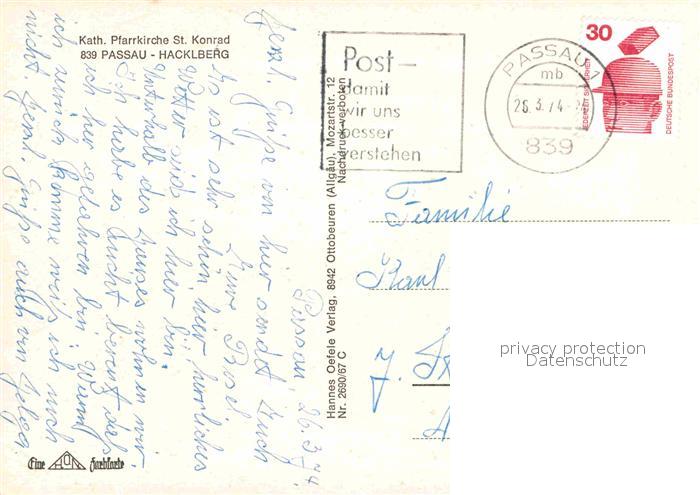 Kath. Pfarrkirche St. Konrad
839 PASSAU - HACKLBERG
Post-
damit
wir uns
besser
verstehen
PASSAU 1
mb
26.3.74-
839
30
JEDERZEIT SICHERHEIT
DEUTSCHE BUNDESPOST
Hannes Oefele Verlag, 8942 Ottobeuren (Allgäu), Mozartstr. 12
Nachdruck verboten
Nr. 2690/67 C
Passau, 26.3.74
Herzl. Grüße von hier sendet Euch
Eure Resel.
Es ist sehr schön hier, herrliches
Wetter seid ich hier bin.
Unterhalb des Hauses
Ich habe es nicht bereut daß
ich her gefahren bin. Wann
ich zurück komme weiß ich noch
nicht. Herzl. Grüße auch von
Familie
Karl
J.
Eine
Farbkarte
privacy protection
Datenschutz